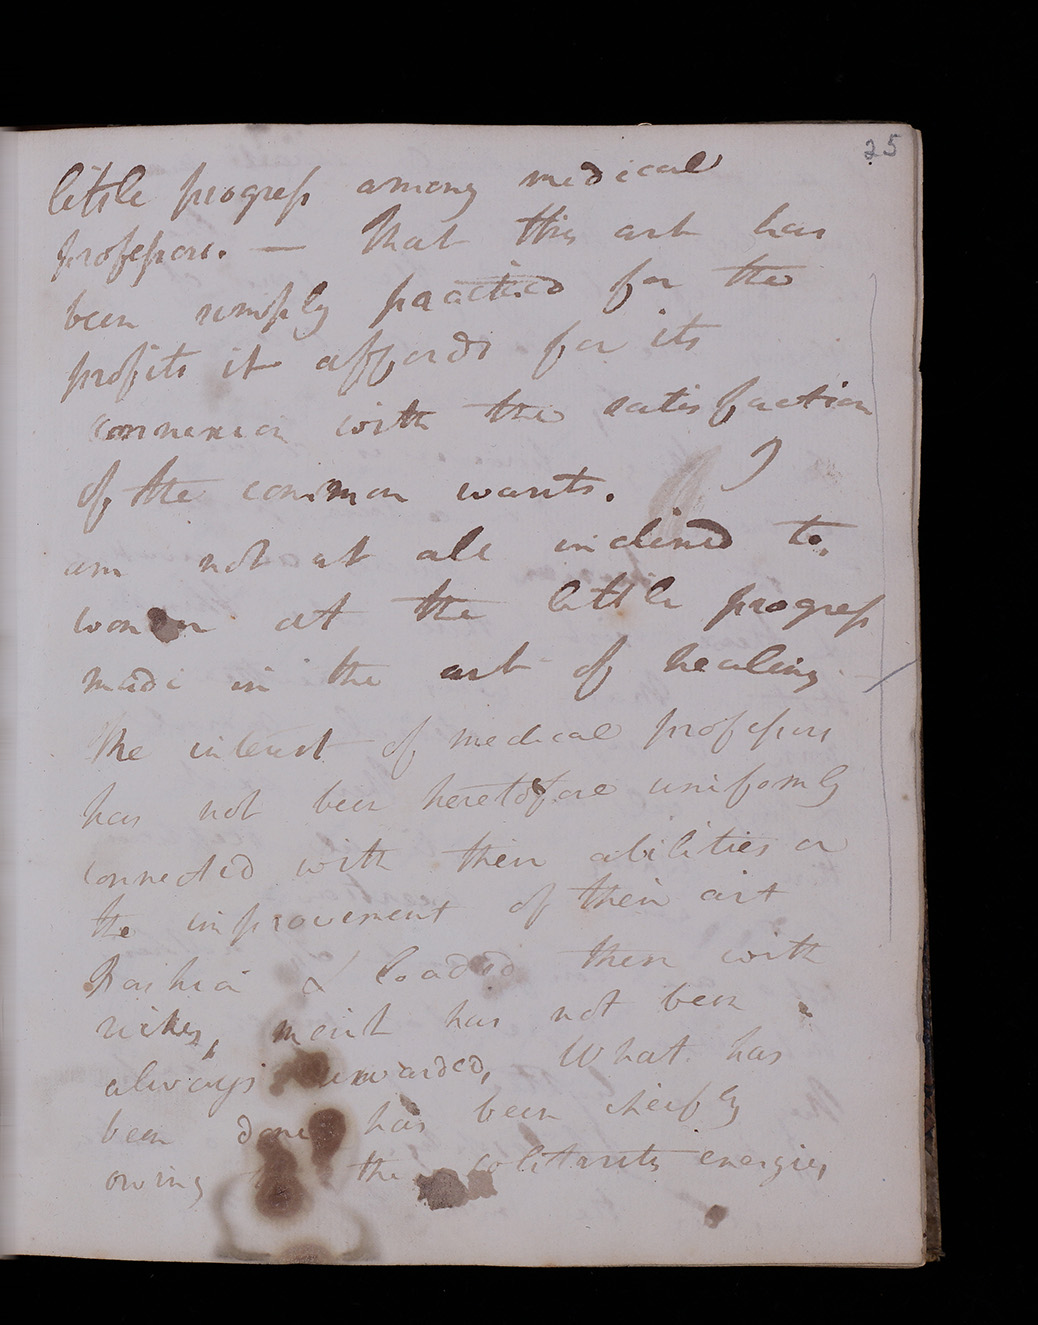 25
little progress among medical
professors. — That this art has
been simply practiced for the
profits it affords for its
connexion with the satisfaction
of the common wants. I
am not at all inclined to
wonder at the little progress
made in the art of healing
The interest of medical professors
has not been heretofore uniformly
connected with their abilities or
the improvement of their art
Fashion & loaded them with
riches, merit has not been
always rewarded, What has
been done has been cheifly
owing the energies